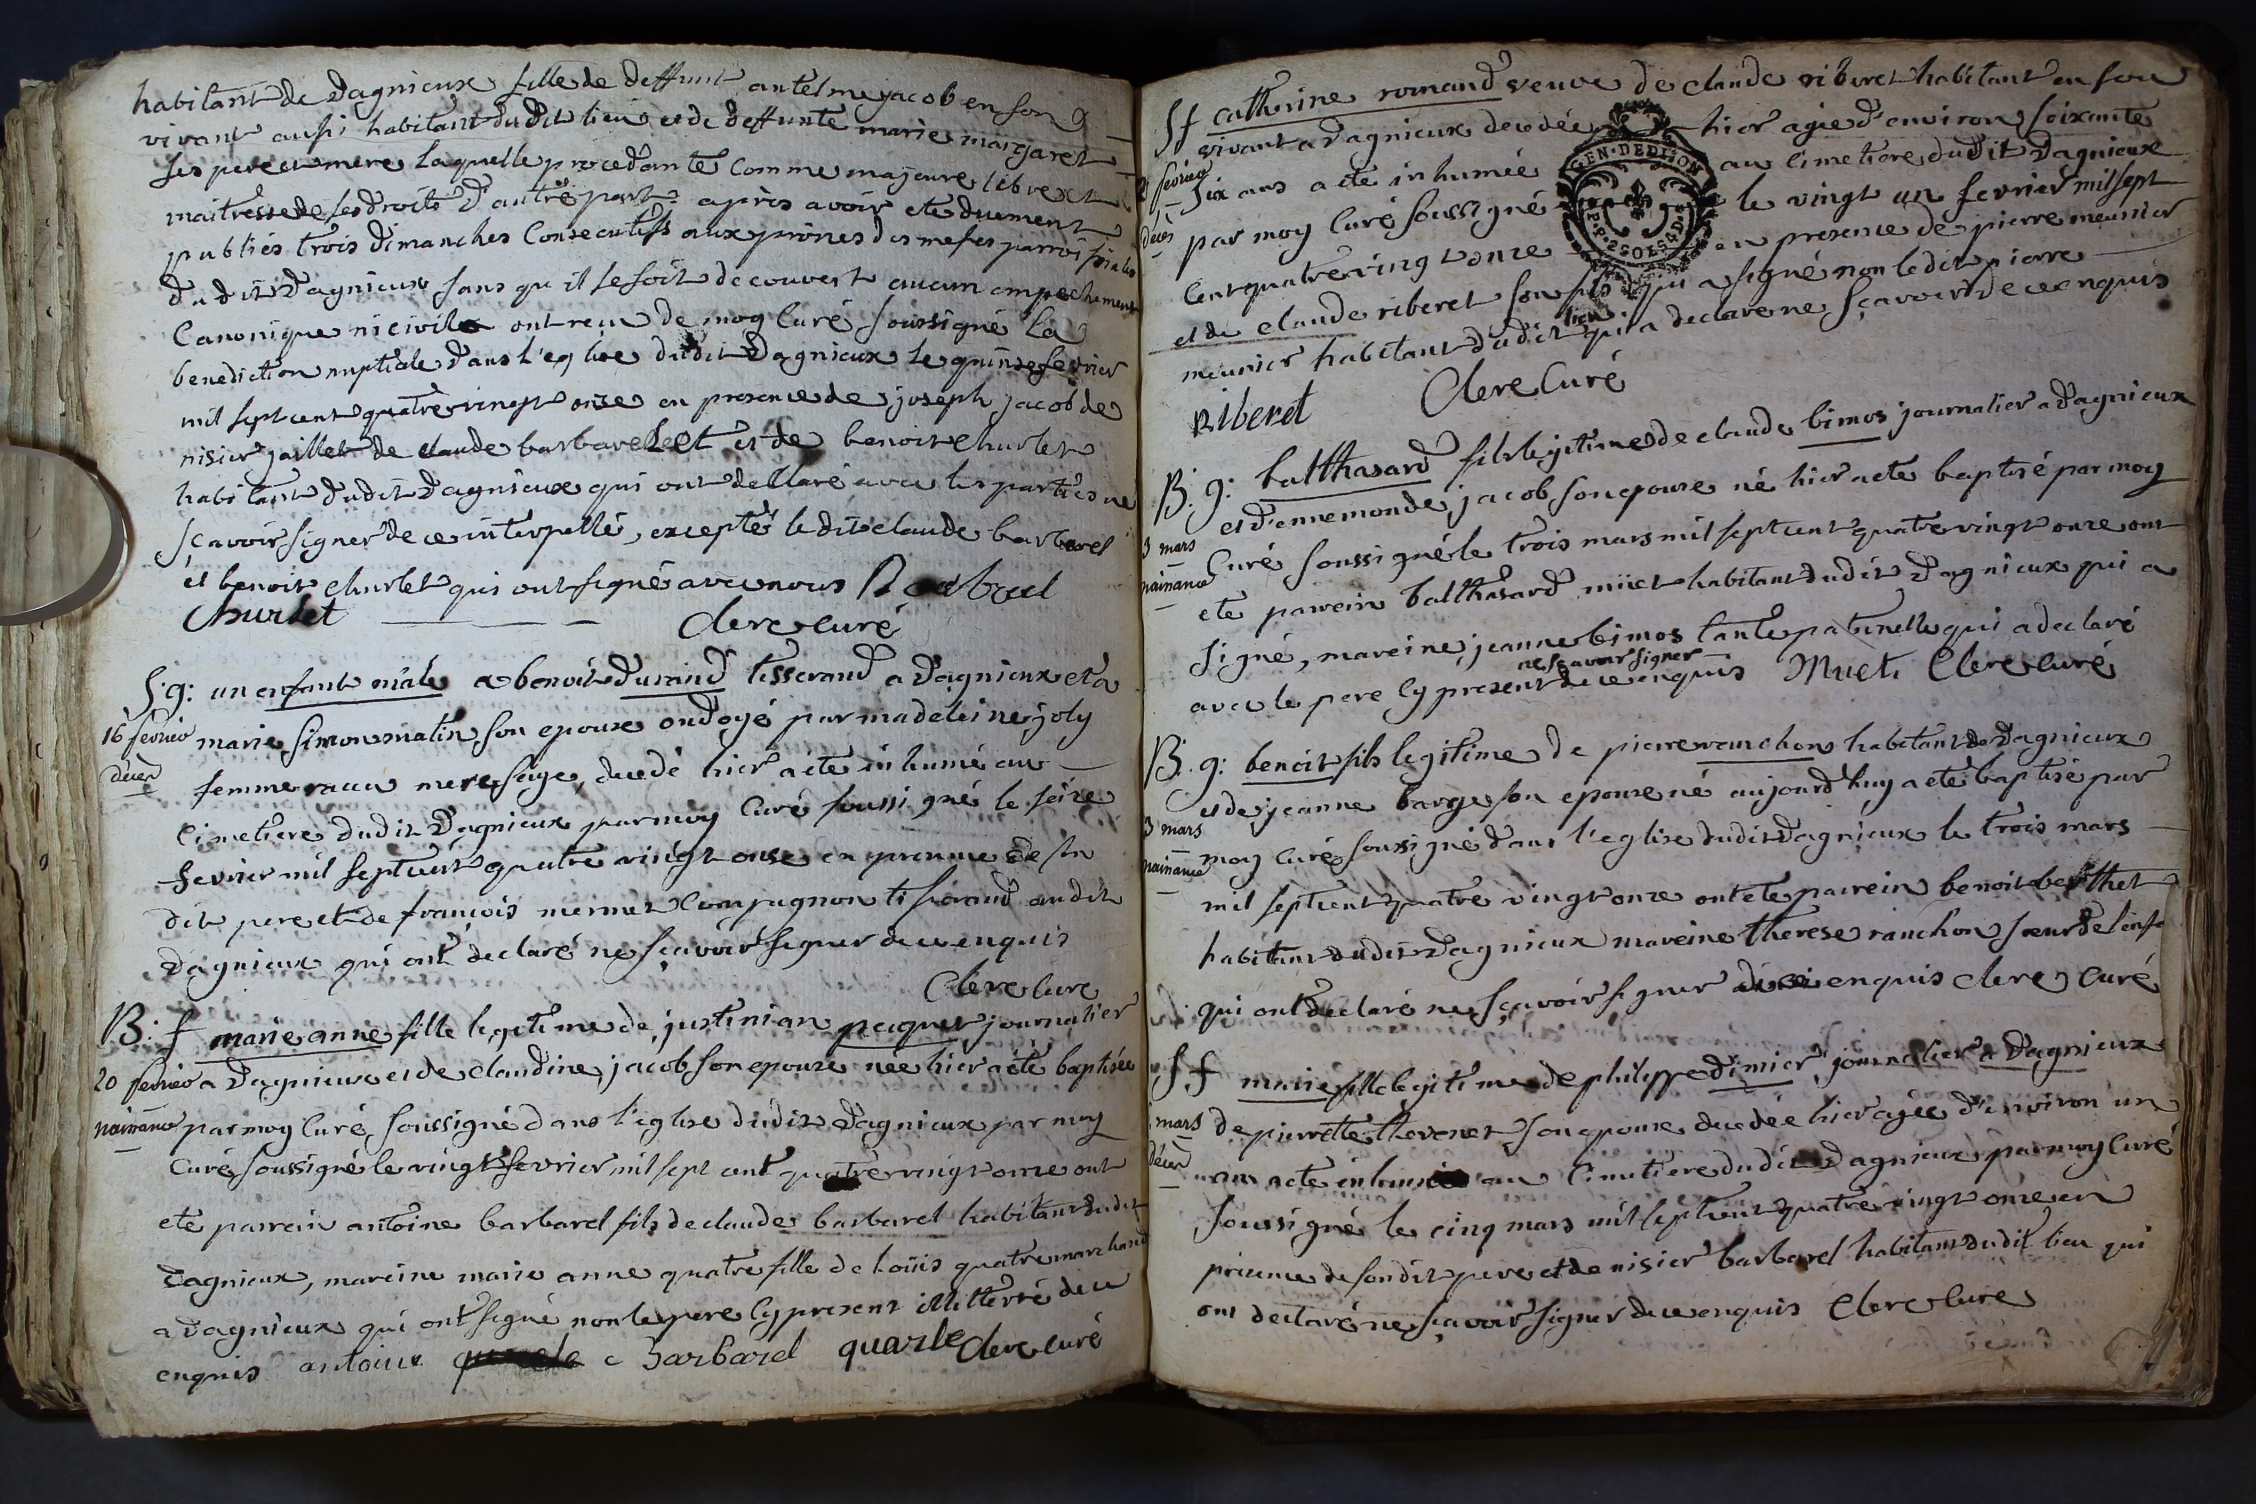 habitant de Dagnieux fille de deffunt antelme jacob en son
vivant aussi habitant dudit lieu et de deffunte marie margaret
ses pere et mere laquelle procedante comme majeure libre et
maitresse de ses droits d'autre part. aprés avoir eté duement
publiés trois dimanches consecutifs aux prônes des messes parroissiales
dudit Dagnieux sans qu'il se soit decouvert aucun empechement
canonique ni civil ont recu de moy curé soussigné la
benediction nuptiale dans l'eglise dudit Dagnieux le quinze fevrier
mil sept cent quatre vingt onze en presence de joseph jacob de
nisier jaillet de claude barbarel et de benoit churlet
habitant dudit Dagnieux qui ont declaré avec les parties ne
sçavoir signer de ce interpellé, excepté ledit claude barbarel
et benoit churlet qui ont signé avec nous Barbarel
Churlet Clerc curé
S. g: un enfant mâle a benoit durand tisserand a Dagnieux et a
16 fevrier marie simon matin son epouse ondoyé par madeleine joly
décès femme racca mere sage, decedé hier a eté inhumé au
cimetiere dudit Dagnieux par moy curé soussigné le seize
fevrier mil sept cent quatre vingt onze en presence de son
dit pere et de françois mermet compagnon tisserand audit
Dagnieux qui ont declaré ne sçavoir signer de ce enquis
Clerc curé
B: f marie anne fille legitime de justinian pequet journalier
20 fevrier a Dagnieux et de claudine jacob son epouse née hier a eté baptisée
naissance par moy curé soussigné dans l'eglise dudit Dagnieux par moy
curé soussigné le vingt fevrier mil sept cent quatre vingt onze ont
eté parrein antoine barbarel fils de claude barbarel habitant dudit
Dagnieux, mareine marie anne quatre fille de loüis quatre marchand
a Dagnieux qui ont signé non le pere cy present illitterré de ce
enquis antoine c Barbarel quarle Clerc curé
S f catherine romand veuve de claude riberet habitant en son
vivant a Dagnieux decedée hier agée d'environ soixante
fevrier six ans a eté inhumée au cimetiere dudit Dagnieux
décès par moy curé soussigné le vingt un fevrier mil sept
cent quatre vingt onze en presence de pierre meunier
et de claude riberet son fils qui a signé non ledit pierre
lieu
meunier habitant dudit qui a declaré ne sçavoir de ce enquis
Riberet Clerc Curé
B. g: balthasard fils legitime de claude bimos journalier a Dagnieux
et d'ennemonde jacob son epouse né hier a eté baptisé par moy
3 mars curé soussigné le trois mars mil sept cent quatre vingt onze ont
naissance eté parrein balthasard müet habitant dudit Dagnieux qui a
signé, mareine jeanne bimos tante paternelle qui a declaré
ne sçavoir signer
avec le pere cy present de ce enquis Muet Clerc curé
B. g: benoit fils legitime de pierre ranchon habitant de Dagnieux
et de jeanne barge son epouse né aujourd'huy a eté baptisé par
3 mars moy curé soussigné dans l'eglise dudit Dagnieux le trois mars
naissance mil sept cent quatre vingt onze ont eté parrein benoit berthet
habitant dudit Dagnieux mareine therese ranchon sœur de l'enf
qui ont declaré ne sçavoir signer de ce enquis Clerc Curé
S f marie fille legitime de philippe dimier journalier a Dagnieux
mars de pierrette thevenet son epouse decedée hier agée d'environ un
décès an a eté inhumée au cimetiere dudit Dagnieux par moy curé
soussigné le cinq mars mil sept cent quatre vingt onze en
presence de son dit pere et de nisier barbarel habitant dudit lieu qui
ont declaré ne sçavoir signer de ce enquis Clerc Curé
GEN. DEDIJON